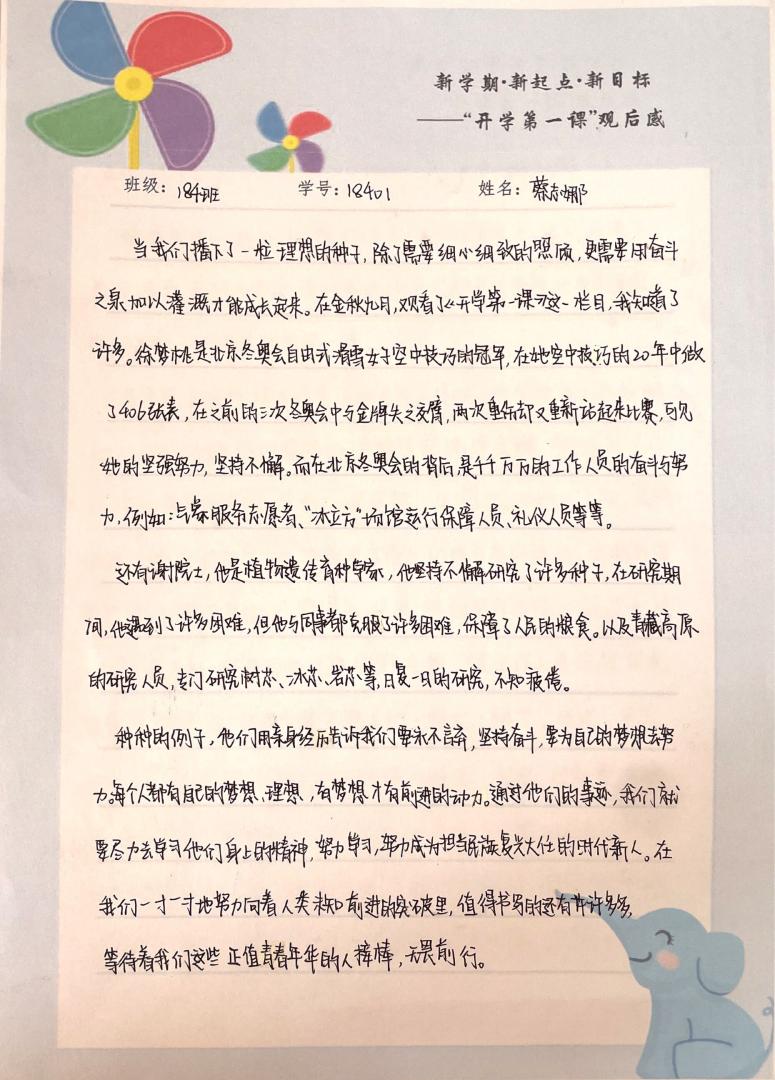 新学期·新起点·新目标
——“开学第一课”观后感
班级：184班 学号：18401 姓名：蔡志娜
当我们播下了一粒理想的种子，除了需要细心细致的照顾，更需要用奋斗
之泉加以灌溉才能成长起来。在金秋九月，观看了《开学第一课》这一栏目，我知道了
许多。徐梦桃是北京冬奥会自由式滑雪女子空中技巧的冠军，在她空中技巧的20年中做
了406张表，在之前的三次冬奥会中与金牌失之交臂，两次重伤却又重新站起来比赛，可见
她的坚强努力，坚持不懈。而在北京冬奥会的背后是千千万万的工作人员的奋斗与努
力，例如：气象服务志愿者、“冰立方”场馆运行保障人员、礼仪人员等等。
还有谢院士，他是植物遗传育种专家，他坚持不懈研究了许多种子，在研究期
间，他遇到了许多困难，但他与同事都克服了许多困难，保障了人民的粮食。以及青藏高原
的研究人员，专门研究树芯、冰芯、岩芯等，日复一日的研究，不知疲倦。
种种的例子，他们用亲身经历告诉我们要永不言弃，坚持奋斗，要为自己的梦想去努
力。每个人都有自己的梦想、理想，有梦想才有前进的动力。通过他们的事迹，我们就
要尽力去学习他们身上的精神，努力学习，努力成为担当民族复兴大任的时代新人。在
我们一寸一寸地努力向着人类求知前进的突破里，值得书写的还有许许多多，
等待着我们这些正值青春年华的人接棒，无畏前行。